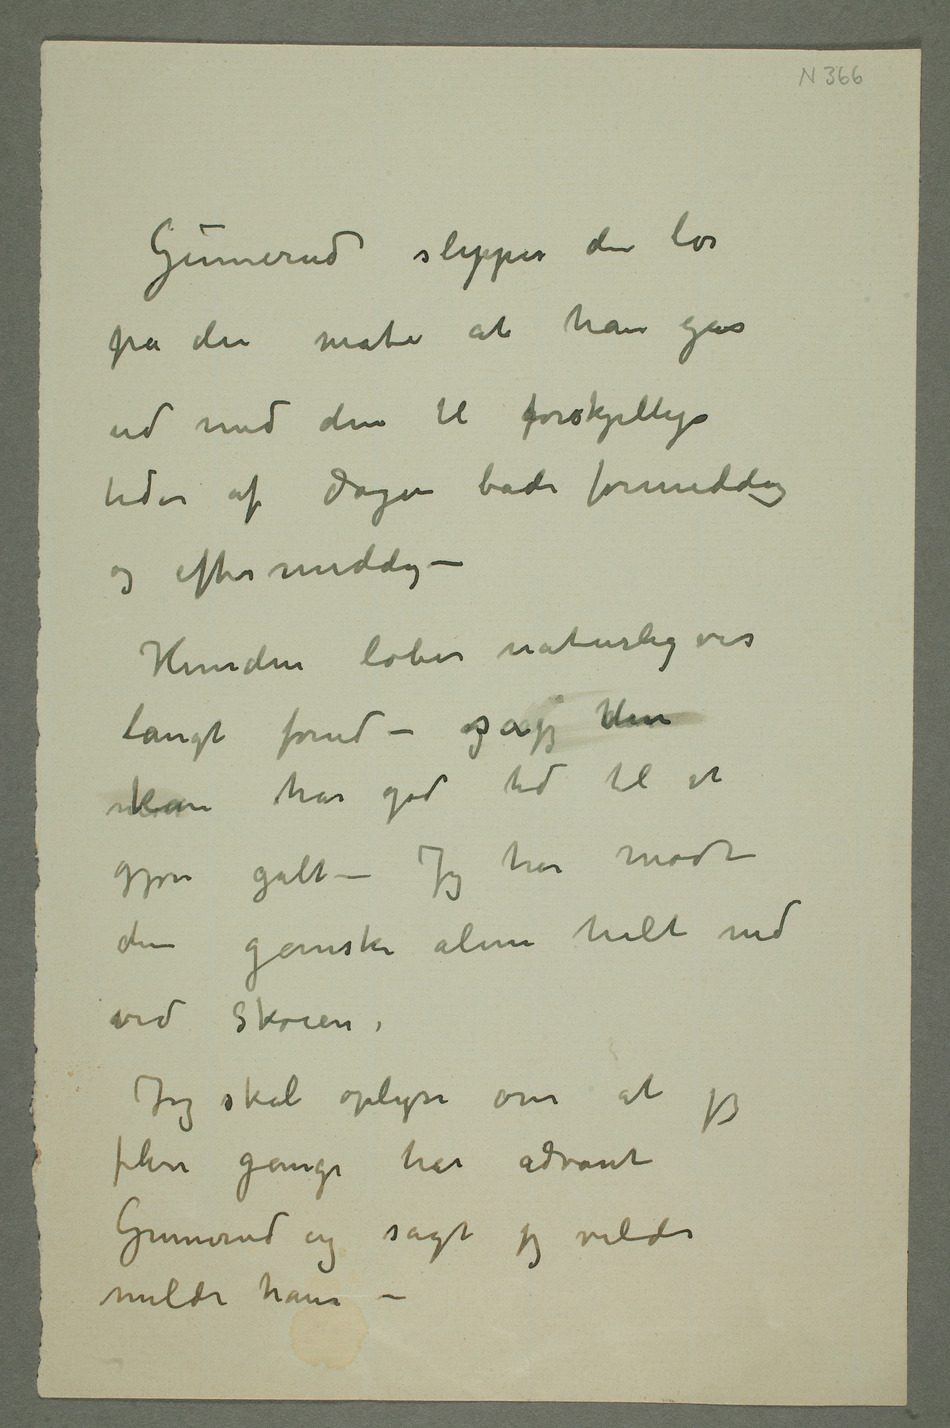 N 366
Gunnerud slipper den løs
på den måte at han gar
ud med den til forskjellige
tider af dagen både formiddag
og eftermiddag –
Hunden løber naturligvis
langt forud – og
han har god tid til at
gjøre galt – Jeg har mødt
den ganske alene helt ned
ved Skøien.
Jeg skal oplyse om at jeg
flere gange har advart
Gunnerud og sagt jeg vilde
melde ham –